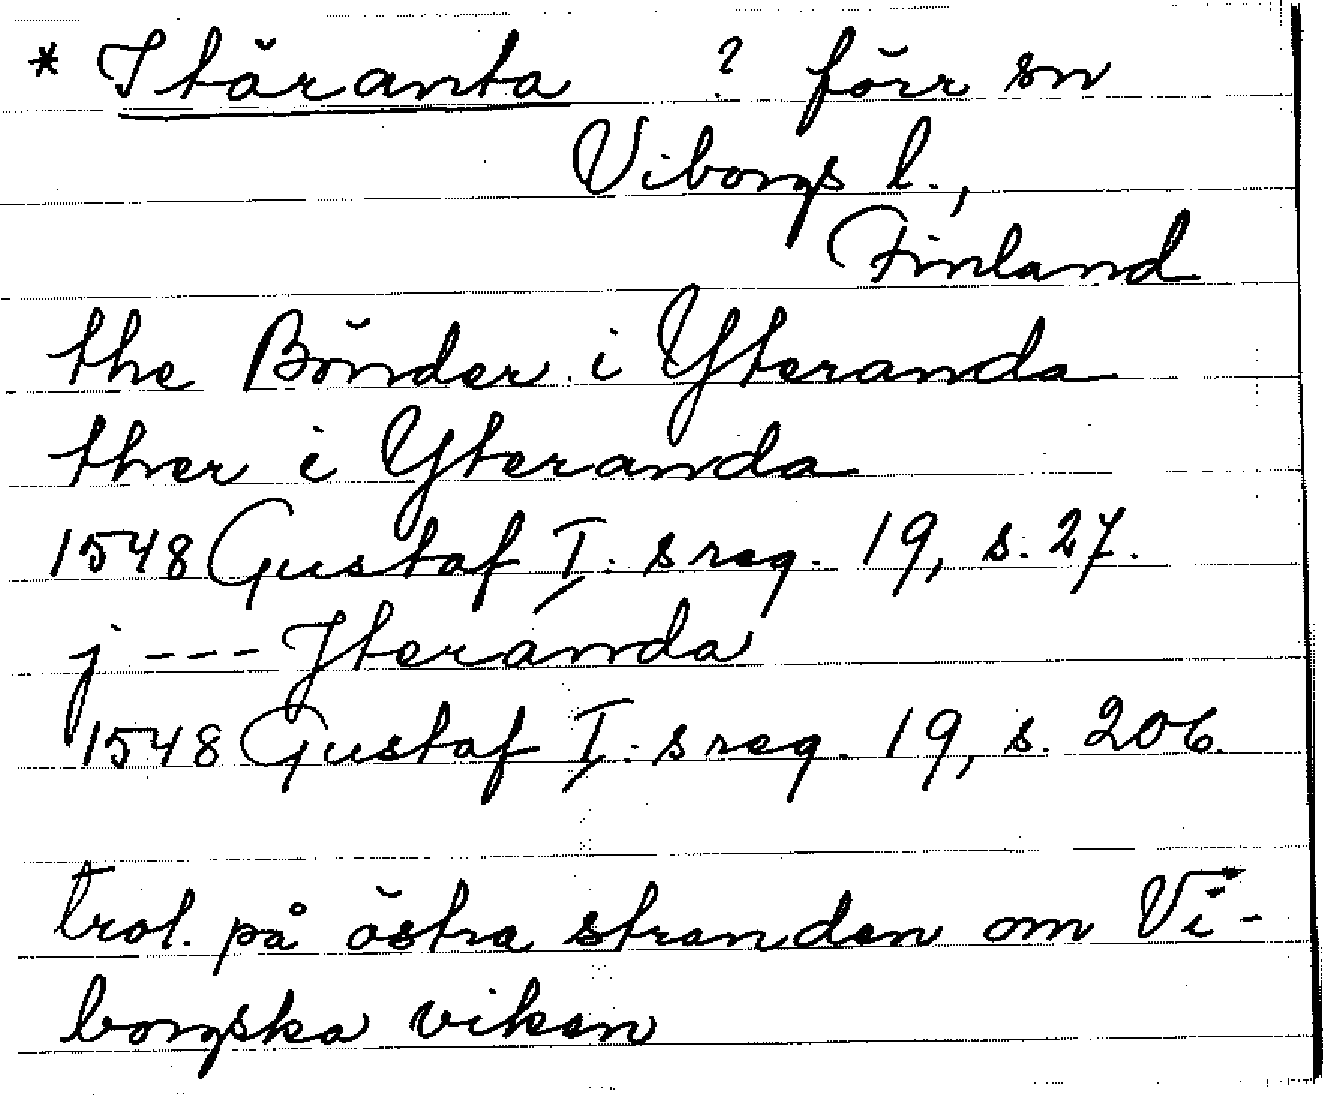 * Itäranta ? förr sn
Viborgs l.,
Finland
the Bönder i Yteranda
ther i Yteranda
1548 Gustaf I:s reg. 19, s. 27.
j --- Jteranda
1548 Gustaf I:s reg. 19, s. 206.
trol. på östra stranden om Vi-
borgska viken